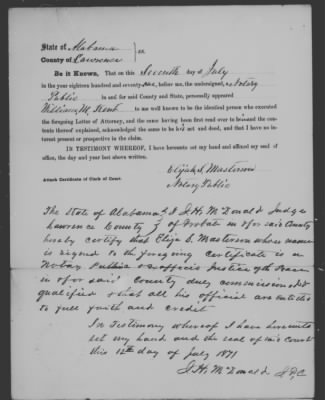 State of Alabama } ss.
County of Lawrence
Be it Known, That on this Seventh day of July
in the year eighteen hundred and seventy one, before me, the undersigned, a Notary
Public in and for said County and State, personally appeared
William M. Kent to me well known to be the identical person who executed
the foregoing Letter of Attorney, and the same having been first read over to him and the con-
tents thereof explained, acknowledged the same to be his act and deed, and that I have no in-
terest present or prospective in the claim.
IN TESTIMONY WHEREOF, I have hereunto set my hand and affixed my seal of
office, the day and year last above written.
Elijah S. Masterson
Notary Public
Attach Certificate of Clerk of Court.
The State of Alabama } I J. H. McDonald Judge
Lawrence County } of Probate in & for said County
hereby certify that Elija S. Masterson whose name
is signed to the foregoing certificate is a
Notary Public & exofficio Justice of the Peace
in & for said County duly commissioned &
qualified & that all his official are entitled
to full faith and credit
In Testimony whereof I have hereunto
set my hand and the seal of said Court
this 12th day of July 1871
J. H. McDonald J.P.C